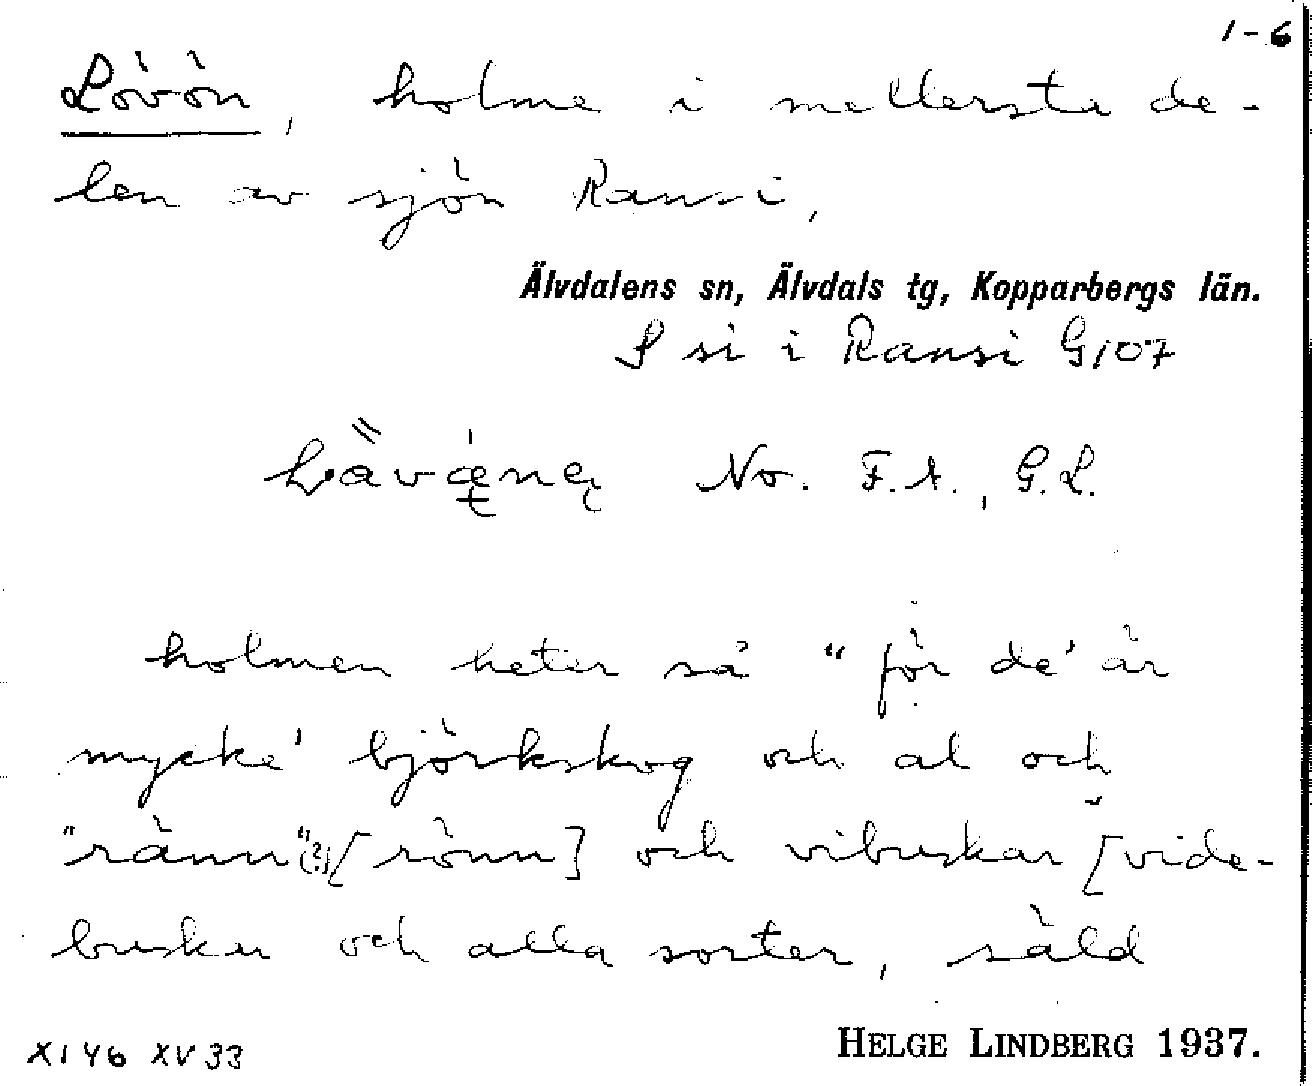 1-6
Lövön, holme i mellersta de-
len av sjön Ransi,
Älvdalens sn, Älvdals tg, Kopparbergs län.
S si i Ransi G107
No. F.A., G.L.
holmen heter så "för de' är
mycke' björkskog och al och
"ränn"(?)[rönn] och vibuskar [vide-
buskar och alla sorter, säld
XI 46 XV 33
HELGE LINDBERG 1937.